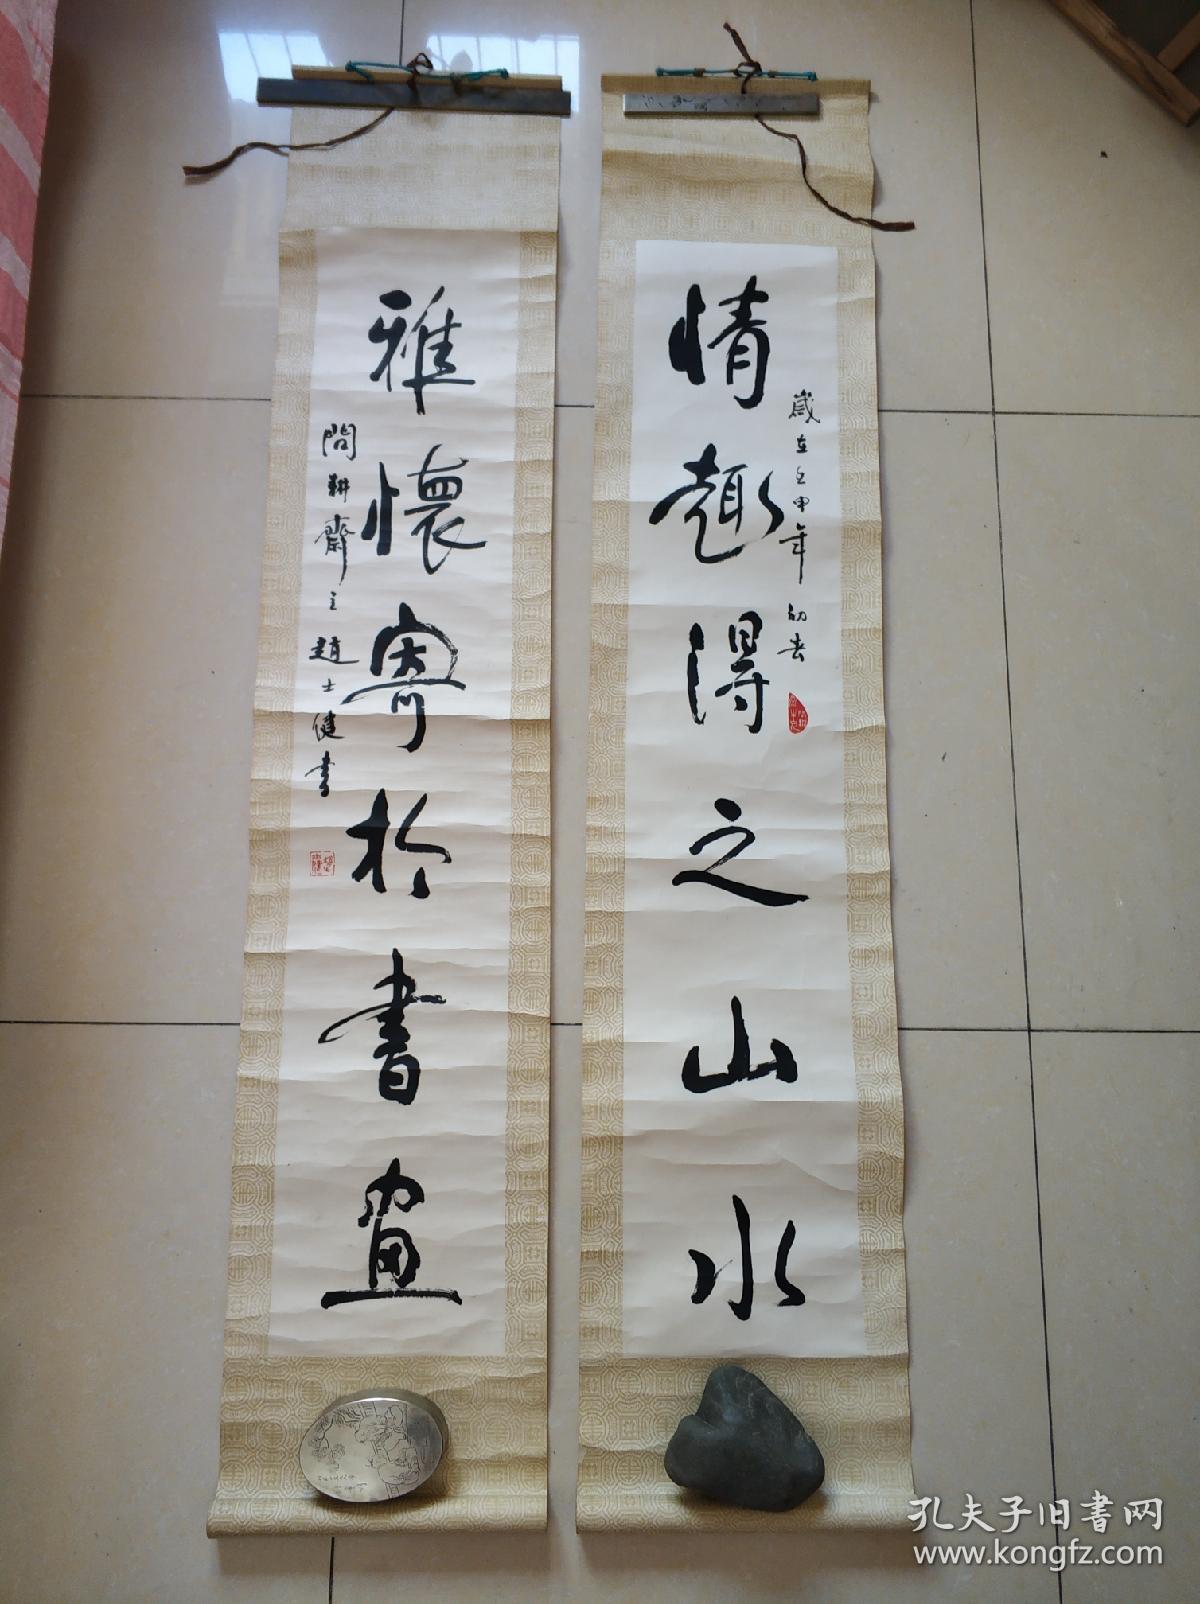 情趣得之山水
歲在壬申年初春
雅懷寄於書畫
問耕齋主趙士健書
孔夫子旧书网
www.kongfz.com